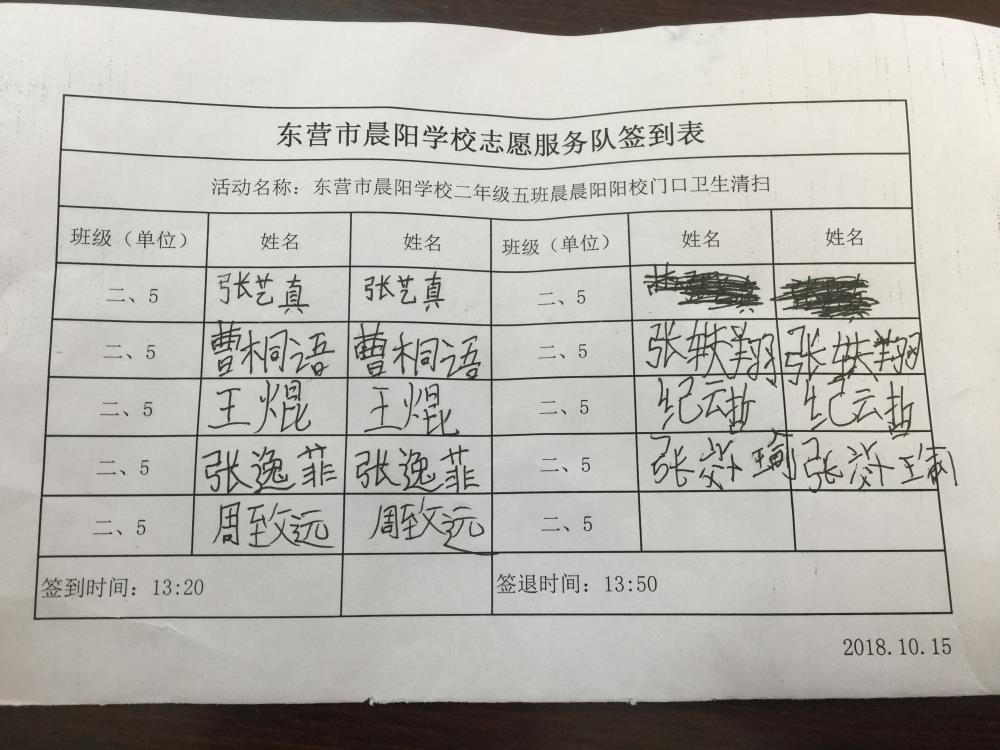 东营市晨阳学校志愿服务队签到表
活动名称：东营市晨阳学校二年级五班晨晨阳阳校门口卫生清扫
班级（单位） 姓名 姓名 班级（单位） 姓名 姓名
二、5 张艺真 张艺真 二、5
二、5 曹桐语 曹桐语 二、5 张轶翔 张轶翔
二、5 王焜 王焜 二、5 纪云哲 纪云哲
二、5 张逸菲 张逸菲 二、5 张
二、5 周致远 周致远 二、5
签到时间：13:20 签退时间：13:50
2018.10.15